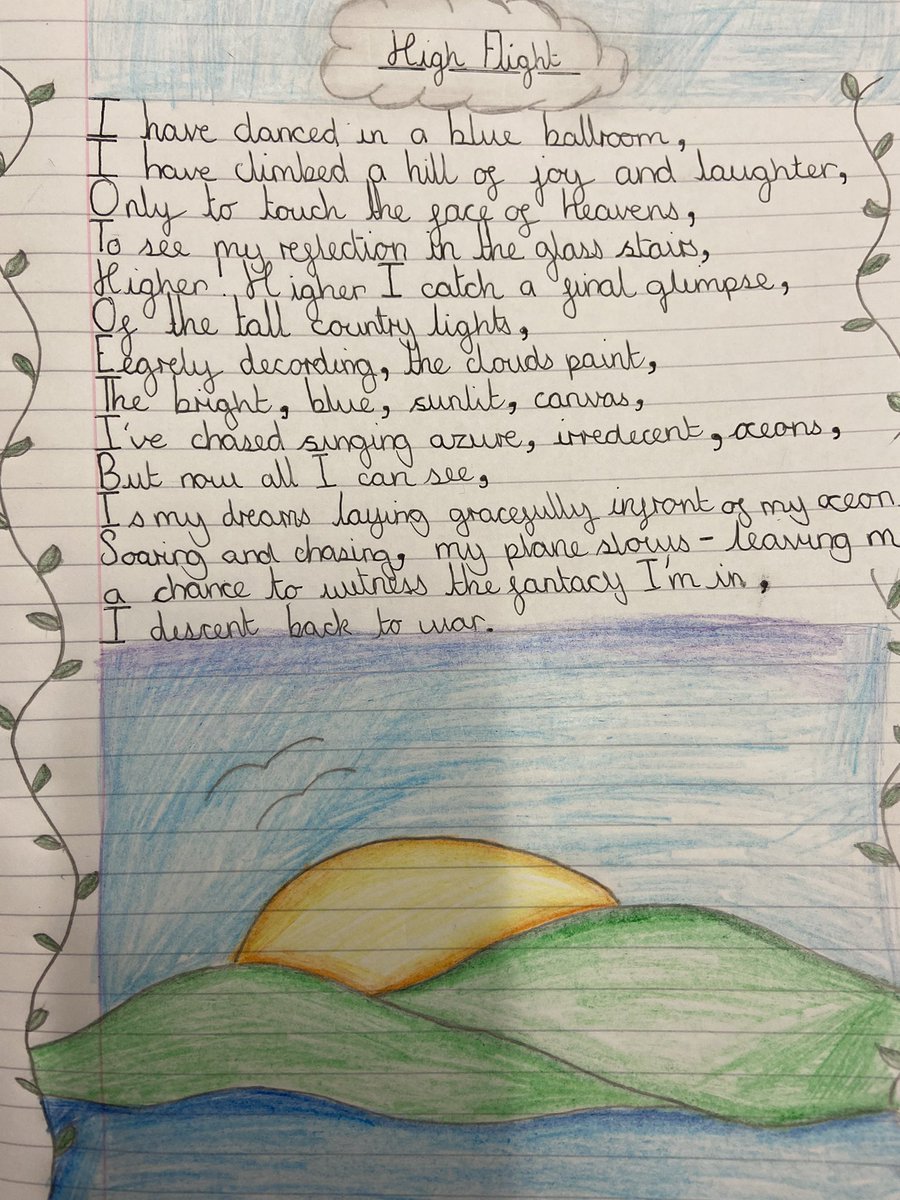 High Flight
I have danced in a blue ballroom,
I have climbed a hill of joy and laughter,
Only to touch the face of Heavens,
To see my reflection in the glass stairs,
Higher! Higher I catch a final glimpse,
Of the tall country lights,
Eegrely decording, the clouds paint,
The bright, blue, sunlit, canvas,
I've chased singing azure, irredecent, oceons,
But now all I can see,
Is my dreams laying gracefully infront of my oceon.
Soaring and chasing, my plane slows - leaving m
a chance to witness the fantacy I'm in,
I descent back to war.